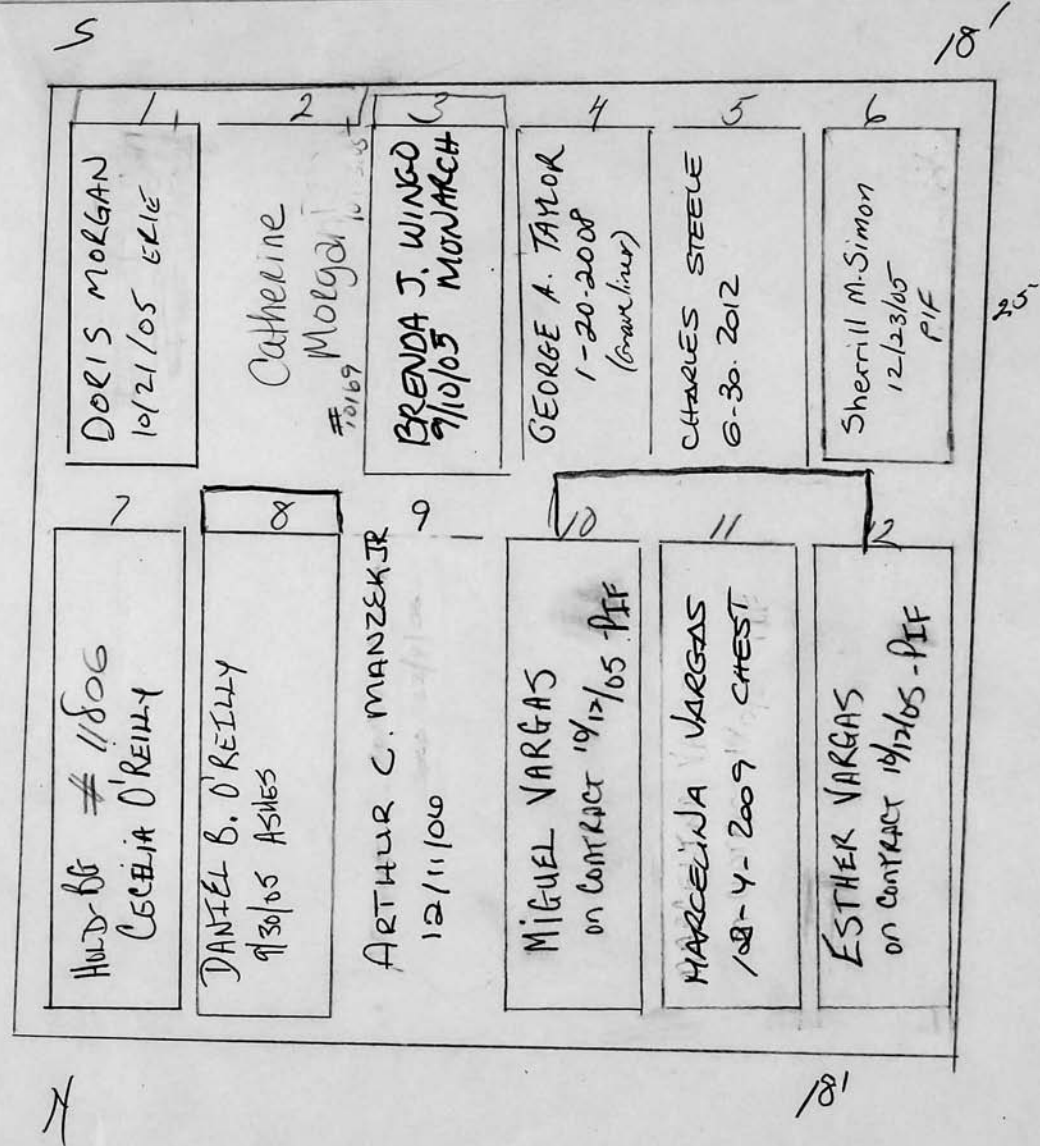 S
18'
1
DORIS MORGAN
10/21/05 ERIE
2
Catherine
Morgan
#10169
3
BRENDA J. WINGO
9/10/05 MONARCH
4
GEORGE A. TAYLOR
1-20-2008
(Graveliner)
5
CHARLES STEELE
6-30-2012
6
Sherrill M. Simon
12/23/05
PIF
25'
7
HOLD-BG # 11806
CECELIA O'REILLY
8
DANIEL B. O'REILLY
9/30/05 ASHES
9
ARTHUR C. MANZEK JR
10
MIGUEL VARGAS
on CONTRACT 10/12/05 PIF
11
MARCELINA VARGAS
4-2009 CHEST
12
ESTHER VARGAS
on CONTRACT 10/12/05-PIF
N
18'